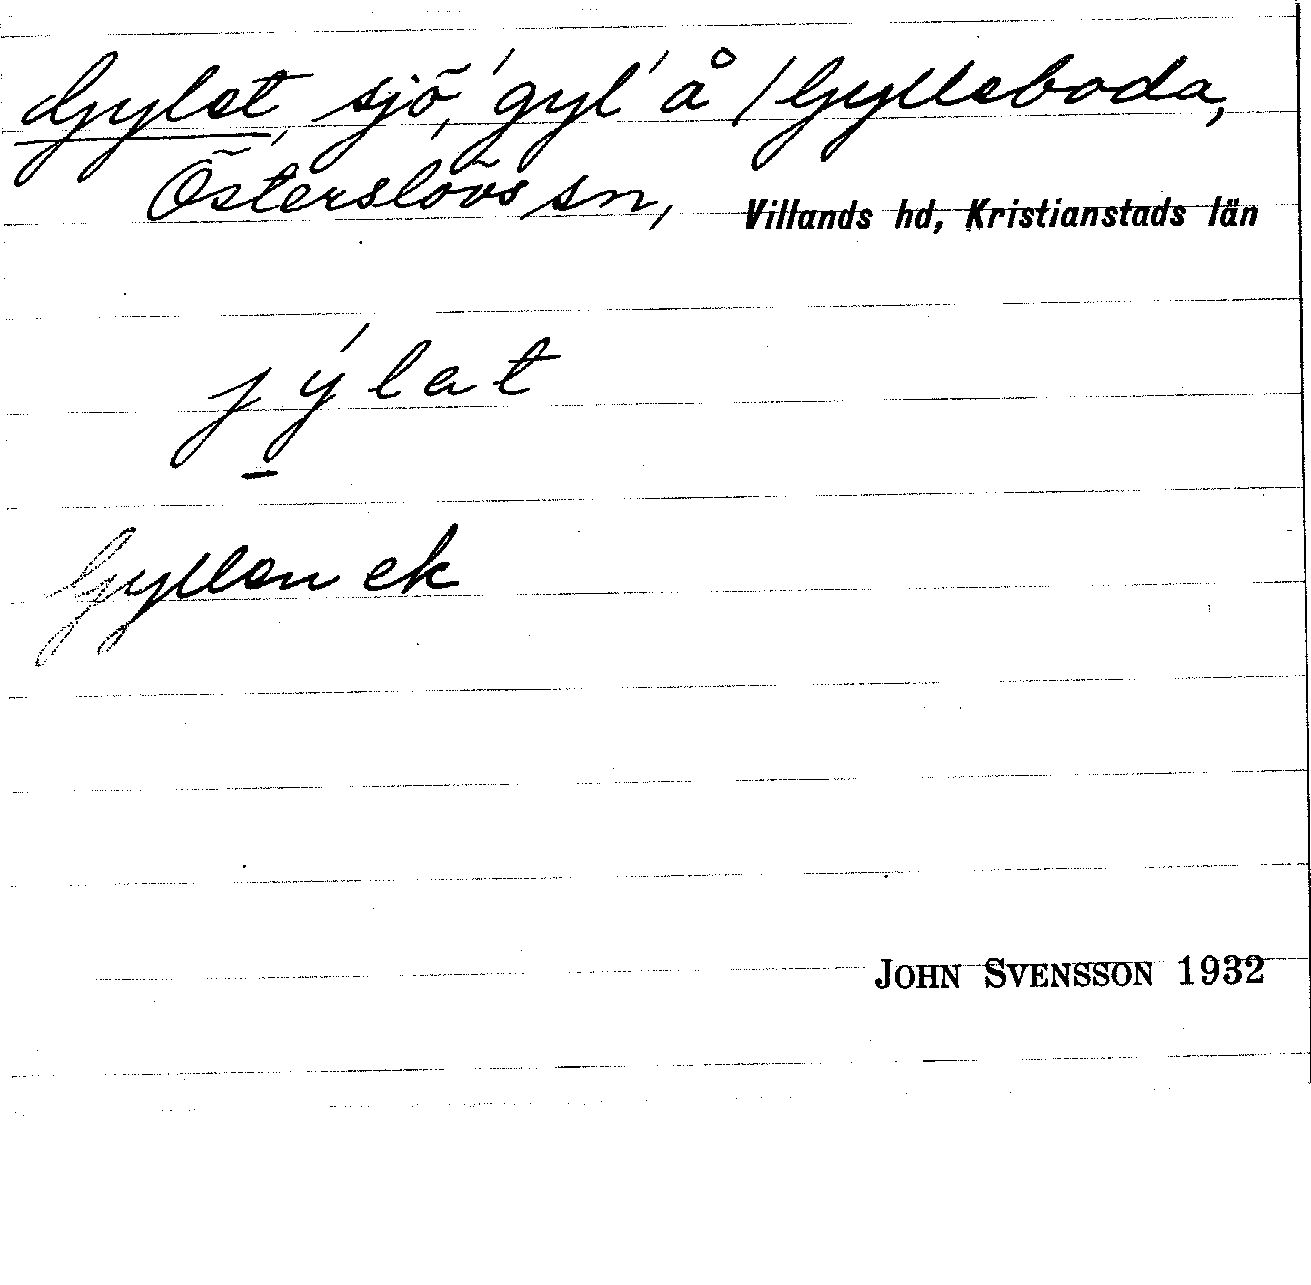 Gylet, sjö, 'gyl' å / Gylleboda,
Österslövs sn, Villands hd, Kristianstads län
jýlat
Gyllen ek
JOHN SVENSSON 1932